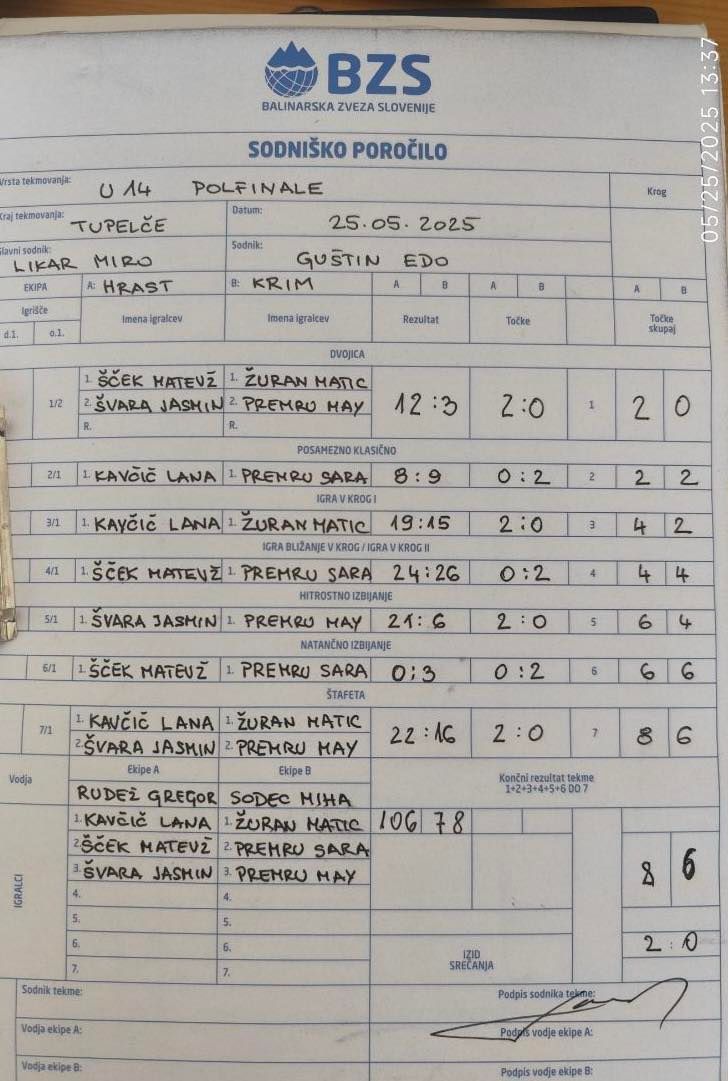 05/25/2025 13:37
BZS
BALINARSKA ZVEZA SLOVENIJE
SODNIŠKO POROČILO
Vrsta tekmovanja: U14 POLFINALE Krog
Kraj tekmovanja: TUPELČE Datum: 25.05.2025
Glavni sodnik: LIKAR MIRO Sodnik: GUŠTIN EDO
EKIPA A: HRAST B: KRIM A B A B A B
Igrišče Imena igralcev Imena igralcev Rezultat Točke Točke skupaj
d.1. o.1.
DVOJICA
1. ŠČEK MATEVŽ 1. ŽURAN MATIC
1/2 2. ŠVARA JASMIN 2. PREMRU MAY 12:3 2:0 1 2 0
R. R.
POSAMEZNO KLASIČNO
2/1 1. KAVČIČ LANA 1. PREMRU SARA 8:9 0:2 2 2 2
IGRA V KROG I
3/1 1. KAVČIČ LANA 1. ŽURAN MATIC 19:15 2:0 3 4 2
IGRA BLIŽANJE V KROG / IGRA V KROG II
4/1 1. ŠČEK MATEVŽ 1. PREMRU SARA 24:26 0:2 4 4 4
HITROSTNO IZBIJANJE
5/1 1. ŠVARA JASMIN 1. PREMRU MAY 21:6 2:0 5 6 4
NATANČNO IZBIJANJE
6/1 1. ŠČEK MATEVŽ 1. PREMRU SARA 0:3 0:2 6 6 6
ŠTAFETA
1. KAVČIČ LANA 1. ŽURAN MATIC
7/1 2. ŠVARA JASMIN 2. PREMRU MAY 22:16 2:0 7 8 6
Vodja Ekipe A Ekipe B Končni rezultat tekme
1+2+3+4+5+6 DO 7
RUDEŽ GREGOR SODEC MIHA
1. KAVČIČ LANA 1. ŽURAN MATIC 106 78
2. ŠČEK MATEVŽ 2. PREMRU SARA
IGRALCI 3. ŠVARA JASMIN 3. PREMRU MAY 8 6
4. 4.
5. 5.
6. 6. IZID SREČANJA 2:0
7. 7.
Sodnik tekme: Podpis sodnika tekme:
Vodja ekipe A: Podpis vodje ekipe A:
Vodja ekipe B: Podpis vodje ekipe B: